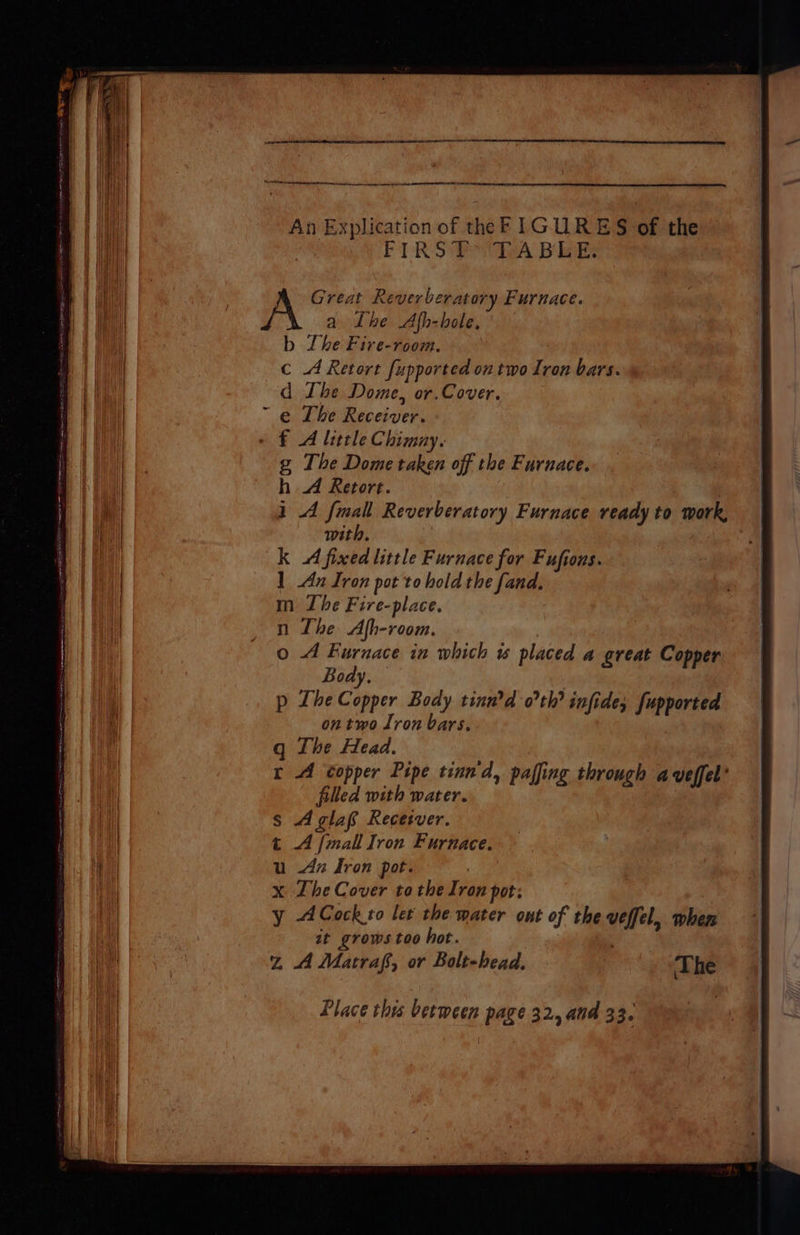 An Explication of the FIGURES of the
FIRST TABLE.
A Great Reverberatory Furnace.
a The Aſh-hole.
b The Fire-room.
c A Retort ſupported on two Iron bars.
d The Dome, or Cover.
e The Receiver.
f A little Chimny.
g The Dome taken off the Furnace.
h A Retort.
i A ſmall Reverberatory Furnace ready to work,
with.
k A fixed little Furnace for Fuſions.
l An Iron pot to hold the ſand.
m The Fire-place.
n The Aſh-room.
o A Furnace in which is placed a great Copper
Body.
p The Copper Body tinn'd o'th' inſide, ſupported
on two Iron bars.
q The Head.
r A copper Pipe tinn'd, paſſing through a veſſel
filled with water.
s A glaſß Receiver.
t A ſmall Iron Furnace.
u An Iron pot.
x The Cover to the Iron pot.
y A Cock to let the water out of the veſſel, when
it grows too hot.
z A Matraſß, or Bolt-head.
The
Place this between page 32, and 33.